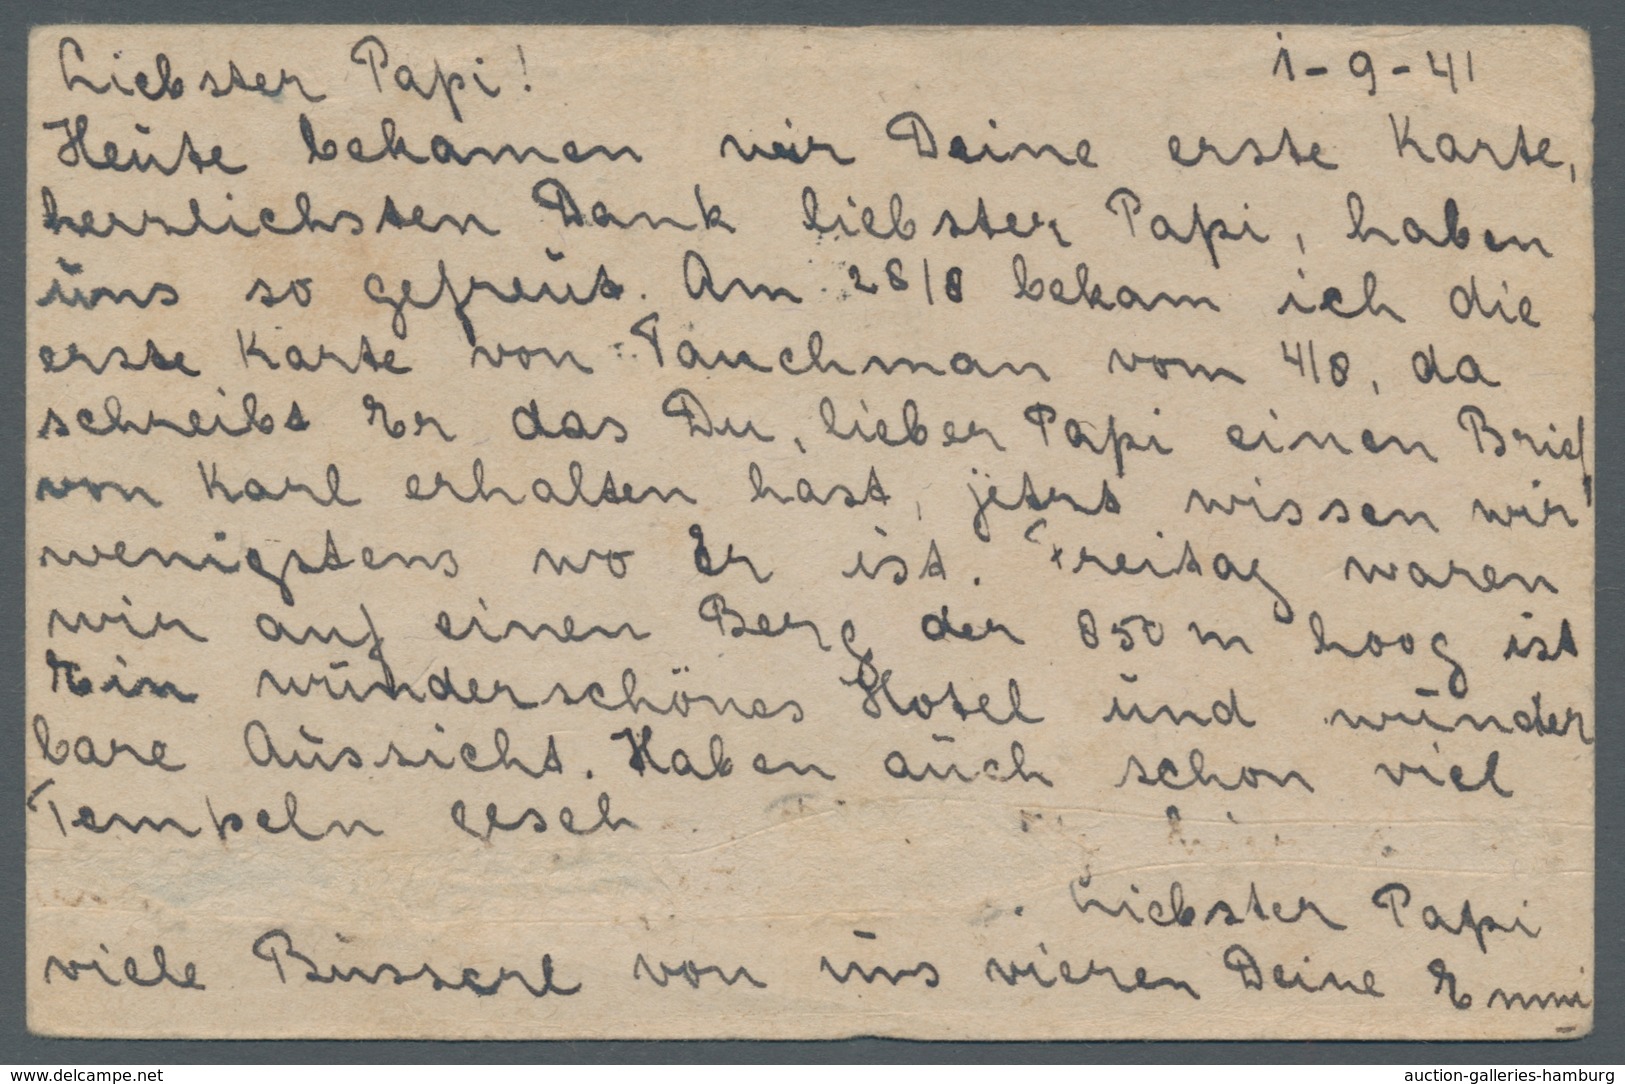 Liebster Papi! 1-9-41
Heúte bekamen wir Deine erste Karte,
herzlichsten Dank liebster Papi, haben
úns so gefreút. Am 28/8 bekam ich die
erste Karte von Tauchman vom 4/8, da
schreibt Er das Du, lieber Papi einen Brief
von Karl erhalten hast, jetzt wissen wir
wenigstens wo Er ist. Freitag waren
wir auf einen Berg der 850 m hoog ist
Ein wúnderschönes Hotel únd wúnder
bare Aússicht. Haben aúch schon viel
Tempeln geseh
Liebster Papi
viele Bússerl von úns vieren Deine Emmi
www.delcampe.net auction-galleries-hamburg